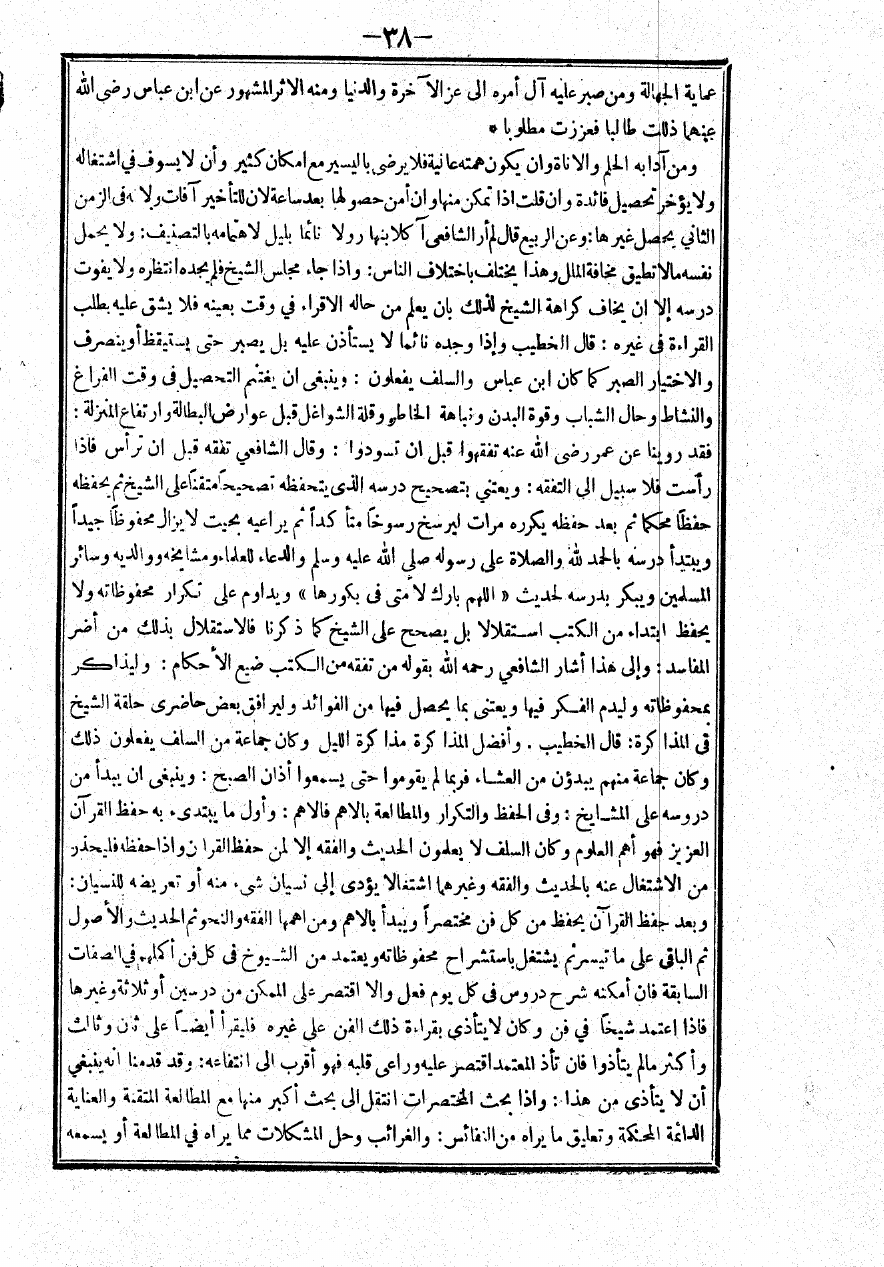 —٣٨—
عماية الجهالة ومن صبر عليه آل أمره الى عز الآخرة والدنيا ومنه الاثر المشهور عن ابن عباس رضى الله
عنهما ذللت طالبا فعززت مطلوبا *
ومن آدابه الحلم والاناة وان يكون همته عالية فلا يرضى باليسير مع امكان كثير وأن لا يسوف في اشتغاله
ولا يؤخر تحصيل فائدة وان قلت اذا تمكن منها وان أمن حصولها بعد ساعة لان للتأخير آفات ولا نه فى الزمن
الثاني يحصل غيرها : وعن الربيع قال لم أر الشافعى آكلا بنهار ولا نائما بليل لاهتمامه بالتصنيف : ولا يحمل
نفسه مالا تطيق مخافة الملل وهذا يختلف باختلاف الناس : واذا جاء مجلس الشيخ فلم يجده انتظره ولا يفوت
درسه إلا ان يخاف كراهة الشيخ لذلك بان يعلم من حاله الاقراء في وقت بعينه فلا يشق عليه بطلب
القراءة فى غيره : قال الخطيب وإذا وجده نائما لا يستأذن عليه بل يصبر حتى يستيقظ أو ينصرف
والاختيار الصبر كما كان ابن عباس والسلف يفعلون : وينبغى ان يغتنم التحصيل فى وقت الفراغ
والنشاط وحال الشباب وقوة البدن ونباهة الخاطر وقلة الشواغل قبل عوارض البطالة وارتفاع المنزلة :
فقد روينا عن عمر رضى الله عنه تفقهوا قبل ان تسودوا : وقال الشافعي تفقه قبل ان ترأس فاذا
رأست فلا سبيل الى التفقه : ويعتني بتصحيح درسه الذى يتحفظه تصحيحاً متقناً على الشيخ ثم يحفظه
حفظاً محكما ثم بعد حفظه يكرره مرات ليرسخ رسوخاً متأكداً ثم يراعيه بحيث لا يزال محفوظاً جيداً
ويبتدأ درسه بالحمد لله والصلاة على رسوله صلي الله عليه وسلم والدعاء للعلماء ومشايخه ووالديه وسائر
المسلمين ويبكر بدرسه لحديث « اللهم بارك لأمتى فى بكورها » ويداوم على تكرار محفوظاته ولا
يحفظ ابتداء من الكتب استقلالا بل يصحح على الشيخ كما ذكرنا فالاستقلال بذلك من أضر
المفاسد : وإلى هذا أشار الشافعي رحمه الله بقوله من تفقه من الكتب ضيع الأحكام : وليذاكر
بمحفوظاته وليدم الفكر فيها ويعتنى بما يحصل فيها من الفوائد وليرافق بعض حاضرى حلقة الشيخ
فى المذاكرة : قال الخطيب . وأفضل المذاكرة مذاكرة الليل وكان جماعة من السلف يفعلون ذلك
وكان جماعة منهم يبدؤن من العشاء فربما لم يقوموا حتى يسمعوا أذان الصبح : وينبغى ان يبدأ من
دروسه على المشايخ : وفى الحفظ والتكرار والمطالعة بالاهم فالاهم : وأول ما يبتدىء به حفظ القرآن
العزيز فهو أهم العلوم وكان السلف لا يعلمون الحديث والفقه إلا لمن حفظ القران واذا حفظه فليحذر
من الاشتغال عنه بالحديث والفقه وغيرهما اشتغالا يؤدى إلى نسيان شىء منه أو تعريضه للنسيان :
وبعد حفظ القرآن يحفظ من كل فن مختصراً ويبدأ بالاهم ومن اهمها الفقه والنحو ثم الحديث والأصول
ثم الباقى على ما تيسر ثم يشتغل باستشراح محفوظاته ويعتمد من الشيوخ فى كل فن أكملهم في الصفات
السابقة فان أمكنه شرح دروس فى كل يوم فعل والا اقتصر على الممكن من درسين أو ثلاثة وغيرها
فاذا اعتمد شيخاً في فن وكان لا يتأذي بقراءة ذلك الفن على غيره فليقرأ أيضاً على ثان وثالث
وأكثر مالم يتأذوا فان تأذ المعتمد اقتصر عليه وراعى قلبه فهو أقرب الى انتفاعه : وقد قدمنا انه ينبغي
أن لا يتأذى من هذا : واذا بحث المختصرات انتقل الى بحث أكبر منها مع المطالعة المتقنة والعناية
الدائمة المحكمة وتعليق ما يراه من النفائس : والغرائب وحل المشكلات مما يراه في المطالعة أو يسمعه